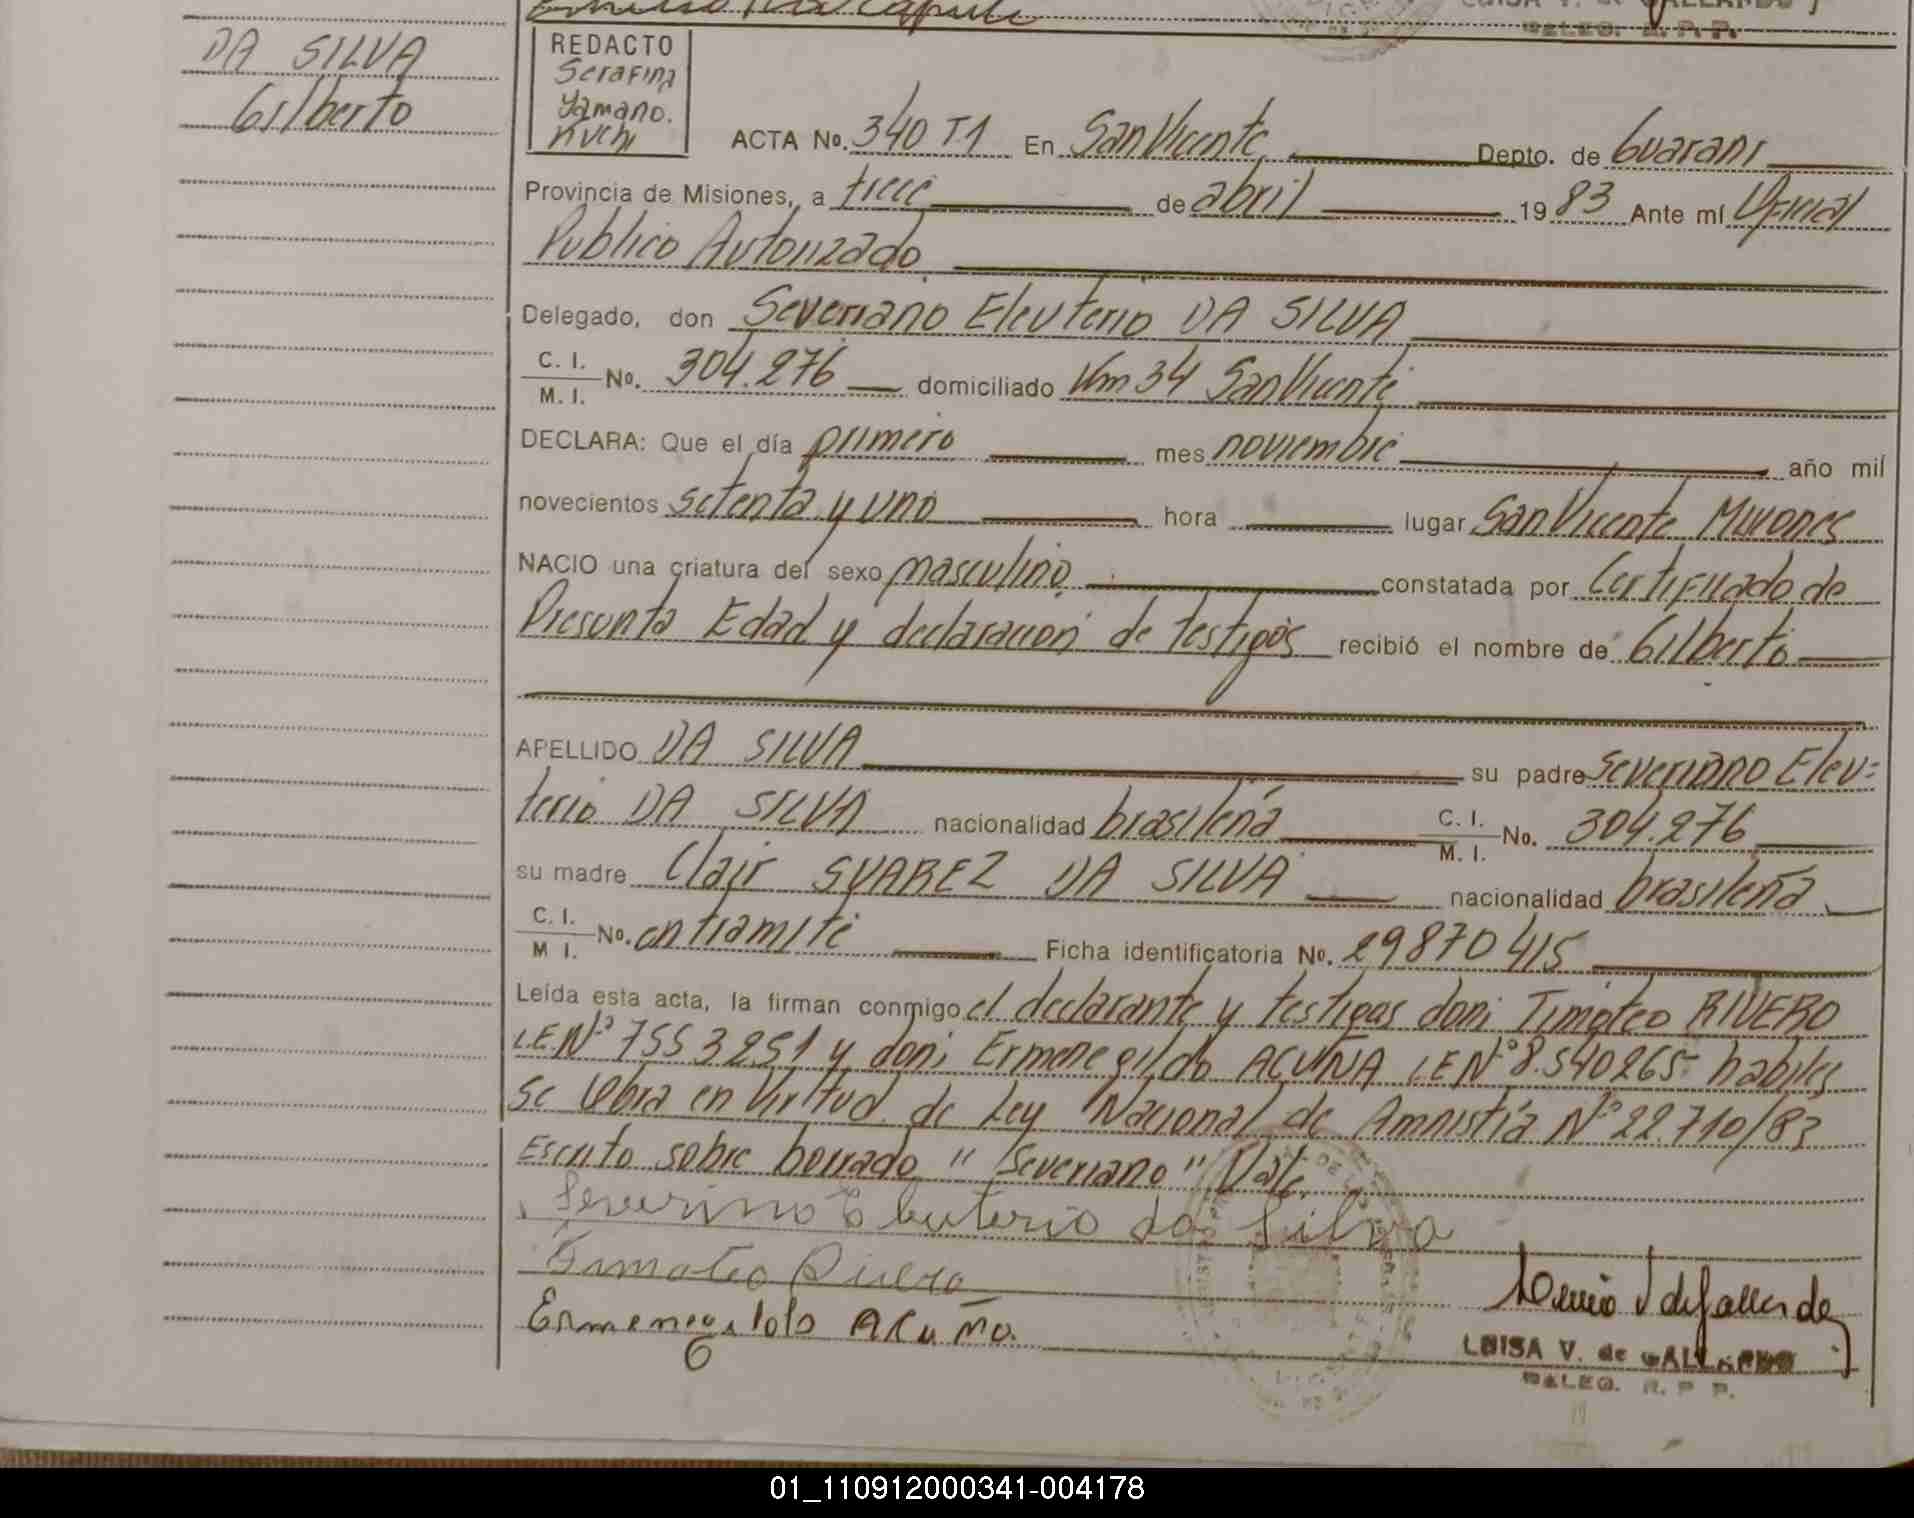 DA SILVA
Gilberto
REDACTO
Serafina
Yamano.
Kuchi
ACTA No. 340 T1 En San Vicente Depto. de Guarani
Provincia de Misiones, a trece de abril 1983 Ante mí Oficial
Publico Autorizado
Delegado, don Severiano Eleuterio DA SILVA
C. I.
M. I. No. 304.276 domiciliado Km 34 San Vicente
DECLARA: Que el día primero mes noviembre año mil
novecientos setenta y uno hora lugar San Vicente Misiones
NACIO una criatura del sexo masculino constatada por Certificado de
Presunta Edad y declaracion de testigos recibió el nombre de Gilberto
APELLIDO DA SILVA su padre Severiano Eleu=
terio DA SILVA nacionalidad brasileña C. I.
M. I. No. 304.276
su madre Clair SUAREZ DA SILVA nacionalidad brasileña
C. I.
M I. No. en tramite Ficha identificatoria No. 29870415
Leída esta acta, la firman conmigo el declarante y testigos don; Timoteo RIVERO
L.E.Nº 7553251 y don; Ermenegildo ACUÑA L.E Nº 8.540265- habiles
Se labra en Virtud de Ley Nacional de Amnistía Nº 22.710/83
Escrito sobre borrado "Severiano" Vale.
Severino Eleuterio da Silva
Timoteo Rivero
Ermenegildo Acuña.
LUISA V. de GALLARDO
DALEG. R. P. P.
01_110912000341-004178